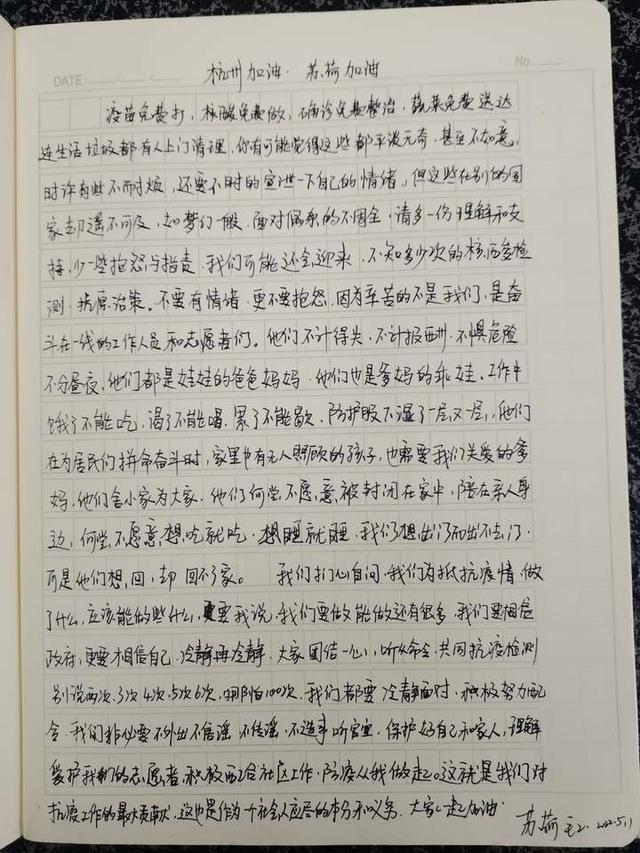 DATE: / / No.
杭州加油. 苏荷加油
疫苗免费打, 核酸免费做, 确诊免费整治, 蔬菜免费送达
连生活垃圾都有人上门清理. 你有可能觉得这些都平淡无奇. 甚至不如意,
时许有些不耐烦, 还要不时的宣泄一下自己的情绪, 但这些在别的国
家却遥不可及, 如梦幻一般. 面对偶尔的不周全, 请多一份理解和支
持, 少一些抱怨与指责. 我们可能还会迎来, 不知多少次的核酸检
测. 抗原治策. 不要有情绪. 更不要抱怨, 因为辛苦的不是我们, 是奋
斗在一线的工作人员和志愿者们. 他们不计得失, 不计报酬. 不惧危险
不分昼夜, 他们都是娃娃的爸爸妈妈. 他们也是爹妈的乖娃. 工作中
饿了不能吃, 渴了不能喝. 累了不能歇. 防护服下湿了一层又一层, 他们
在为居民们拼命奋斗时, 家里也有无人照顾的孩子, 也需要我们关爱的爹
妈, 他们舍小家为大家. 他们何尝不愿意被封闭在家中, 陪在亲人身
边, 何尝不愿意想吃就吃. 想睡就睡. 我们想出门而出不去门.
可是他们想回, 却回不了家. 我们扪心自问. 我们为抵抗疫情. 做
了什么, 应该能做些什么, 要我说. 我们要做能做还有很多. 我们要相信
政府, 更要相信自己. 冷静再冷静. 大家团结一心, 听从命令. 共同抗疫检测
别说两次. 3次 4次. 5次 6次, 哪怕100次. 我们都要冷静面对. 积极努力配
合. 我们非必要不外出不信谣. 不传谣. 不造事听官宣. 保护好自己和家人, 理解
爱护我们的志愿者. 积极配合社区工作. 防疫从我做起. 这就是我们对
抗疫工作的最大贡献. 这也是作为一个社会人应尽的本分和义务. 大家一起加油.
苏荷 2022.5.11